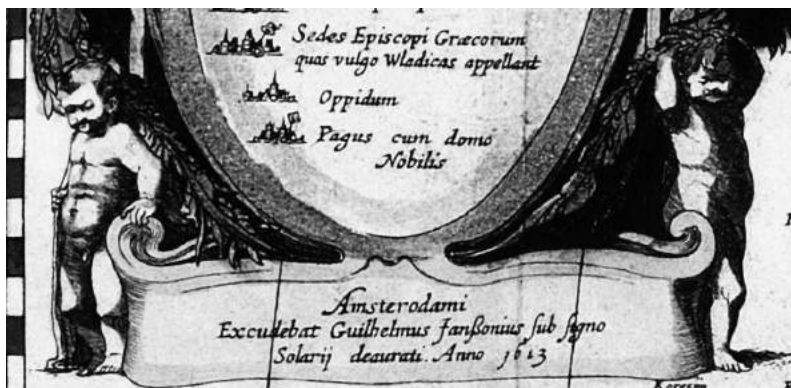 Sedes Episcopi Græcorum
quas vulgo Wladicas appellant
Oppidum
Pagus cum domo
Nobilis
Amsterodami
Excudebat Guilhelmus Janßonius sub signo
Solarij deaurati. Anno 1613